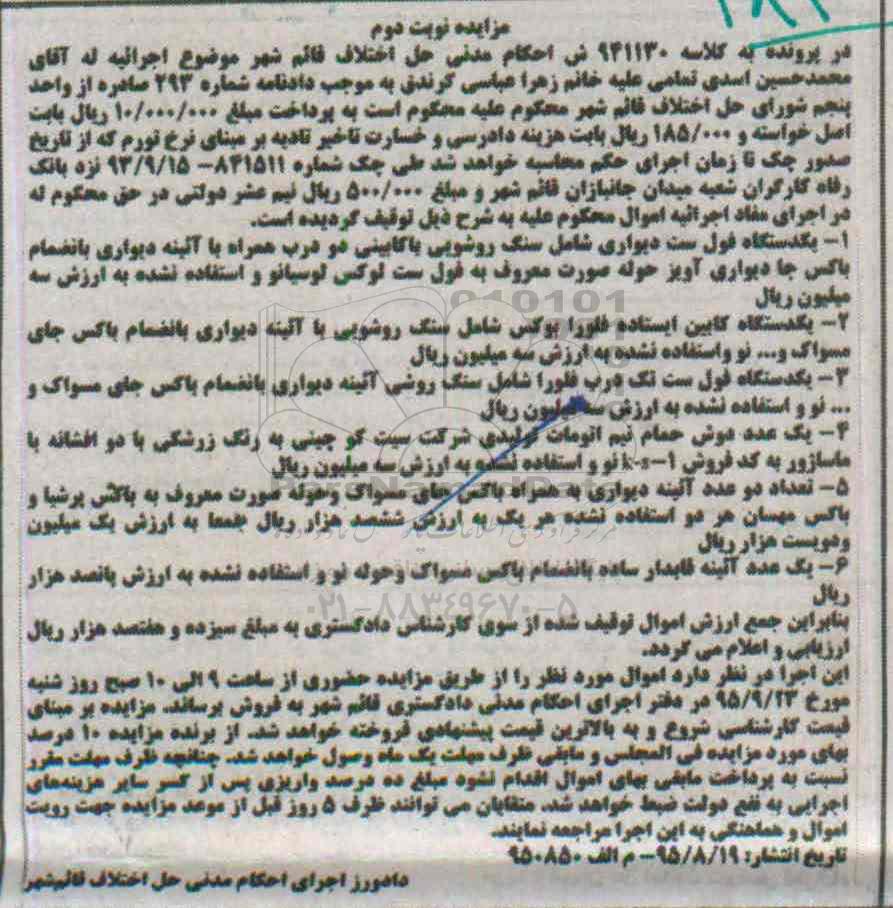 مزایده نوبت دوم
در پرونده به کلاسه ۹۴۱۱۳۰ ش احکام مدنی حل اختلاف قائم شهر موضوع اجرائیه له آقای
محمدحسین اسدی تمامی علیه خانم زهرا عباسی کرندق به موجب دادنامه شماره ۲۹۳ صادره از واحد
پنجم شورای حل اختلاف قائم شهر محکوم علیه محکوم است به پرداخت مبلغ ۱۰/۰۰۰/۰۰۰ ریال بابت
اصل خواسته و ۱۸۵/۰۰۰ ریال بابت هزینه دادرسی و خسارت تاخیر تادیه بر مبنای نرخ تورم که از تاریخ
صدور چک تا زمان اجرای حکم محاسبه خواهد شد طی چک شماره ۸۴۱۵۱۱– ۹۳/۹/۱۵ نزد بانک
رفاه کارگران شعبه میدان جانبازان قائم شهر و مبلغ ۵۰۰/۰۰۰ ریال نیم عشر دولتی در حق محکوم له
در اجرای مفاد اجرائیه اموال محکوم علیه به شرح ذیل توقیف گردیده است.
۱– یکدستگاه فول ست دیواری شامل سنگ روشویی باکابینی دو درب همراه با آئینه دیواری بانضمام
باکس جا دیواری آویز حوله صورت معروف به فول ست لوکس لوسیانو و استفاده نشده به ارزش سه
میلیون ریال
۲– یکدستگاه کابین ایستاده فلورا بوکس شامل سنگ روشویی با آئینه دیواری بانضمام باکس جای
مسواک و... نو واستفاده نشده به ارزش سه میلیون ریال
۳– یکدستگاه فول ست تک درب فلورا شامل سنگ روشی آئینه دیواری بانضمام باکس جای مسواک و
... نو و استفاده نشده به ارزش سه میلیون ریال
۴– یک عدد دوش حمام نیم اتومات تولیدی شرکت سیت کو چینی به رنگ زرشکی با دو افشانه با
ماساژور به کد فروش k-s-۱ نو و استفاده نشده به ارزش سه میلیون ریال
۵– تعداد دو عدد آئینه دیواری به همراه باکس جای مسواک وحوله صورت معروف به باکس پرشیا و
باکس مهسان هر دو استفاده نشده هر یک به ارزش ششصد هزار ریال جمعا به ارزش یک میلیون
ودویست هزار ریال
۶– یک عدد آئینه قابدار ساده بانضمام باکس مسواک وحوله نو و استفاده نشده به ارزش پانصد هزار
ریال
بنابراین جمع ارزش اموال توقیف شده از سوی کارشناس دادگستری به مبلغ سیزده و هفتصد هزار ریال
ارزیابی و اعلام می گردد.
این اجرا در نظر دارد اموال مورد نظر را از طریق مزایده حضوری از ساعت ۹ الی ۱۰ صبح روز شنبه
مورخ ۹۵/۹/۲۳ در دفتر اجرای احکام مدنی دادگستری قائم شهر به فروش برساند. مزایده بر مبنای
قیمت کارشناسی شروع و به بالاترین قیمت پیشنهادی فروخته خواهد شد. از برنده مزایده ۱۰ درصد
بهای مورد مزایده فی المجلس و مابقی ظرف مهلت یک ماه وصول خواهد شد. چنانچه ظرف مهلت مقرر
نسبت به پرداخت مابقی بهای اموال اقدام نشود مبلغ ده درصد واریزی پس از کسر سایر هزینه‌های
اجرایی به نفع دولت ضبط خواهد شد. متقاضیان می توانند ظرف ۵ روز قبل از موعد مزایده جهت رویت
اموال و هماهنگی به این اجرا مراجعه نمایند.
تاریخ انتشار: ۹۵/۸/۱۹– م الف ۹۵۰۸۵۰
دادورز اجرای احکام مدنی حل اختلاف قائمشهر
ParsNamadData
۰۲۱–۸۸۳۴۹۶۷۰–۵